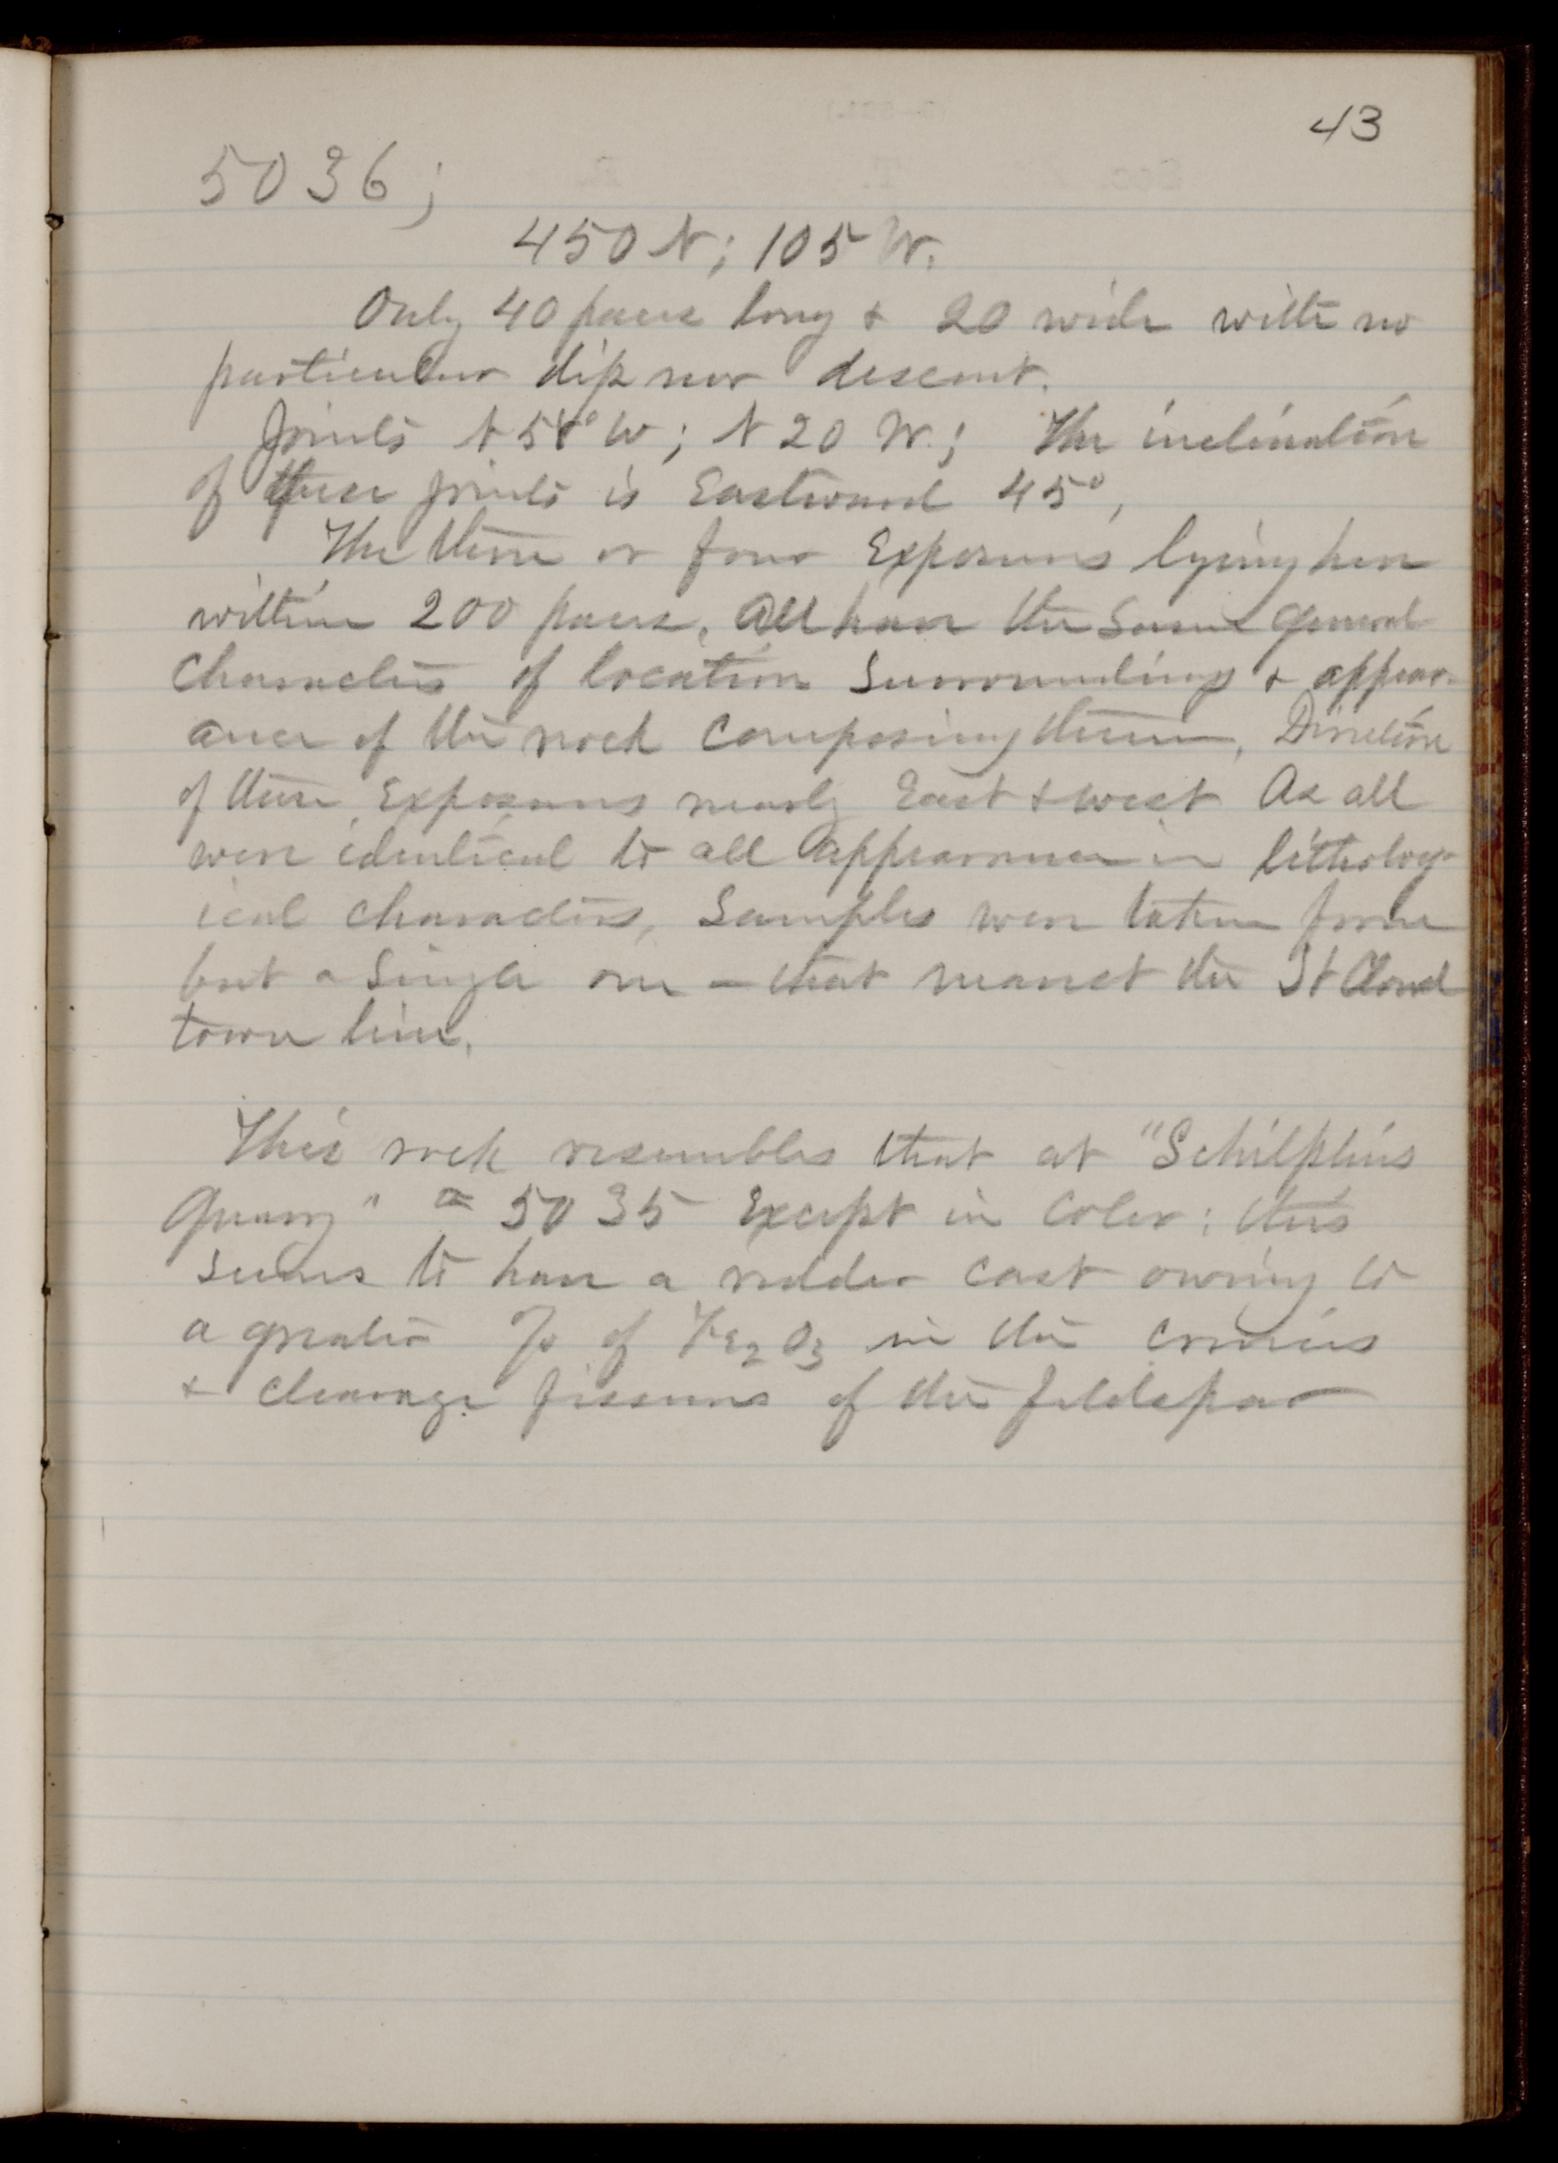 43
5036;
450 N; 105 W.
Only 40 paces long & 20 wide with no
particular dip nor descent.
Joints N 58° W; N 20 W.; The inclination
of these joints is Eastward 45°,
The three or four Exposures lying here
within 200 paces, All have the Same general
Characters of location Surroundings & appear-
ance of the rock composing them, Direction
of these Exposures nearly East & west As all
were identical to all appearance in litholog-
ical characters, Samples were taken from
but a Single one – that nearest the St Cloud
town line.
This rock resembles that at "Schilplins
Quarry" = 5035 Except in Color: this
seems to have a redder cast owing to
a greater % of Fe2O3 in the crevices
& cleavage fissures of the feldspar